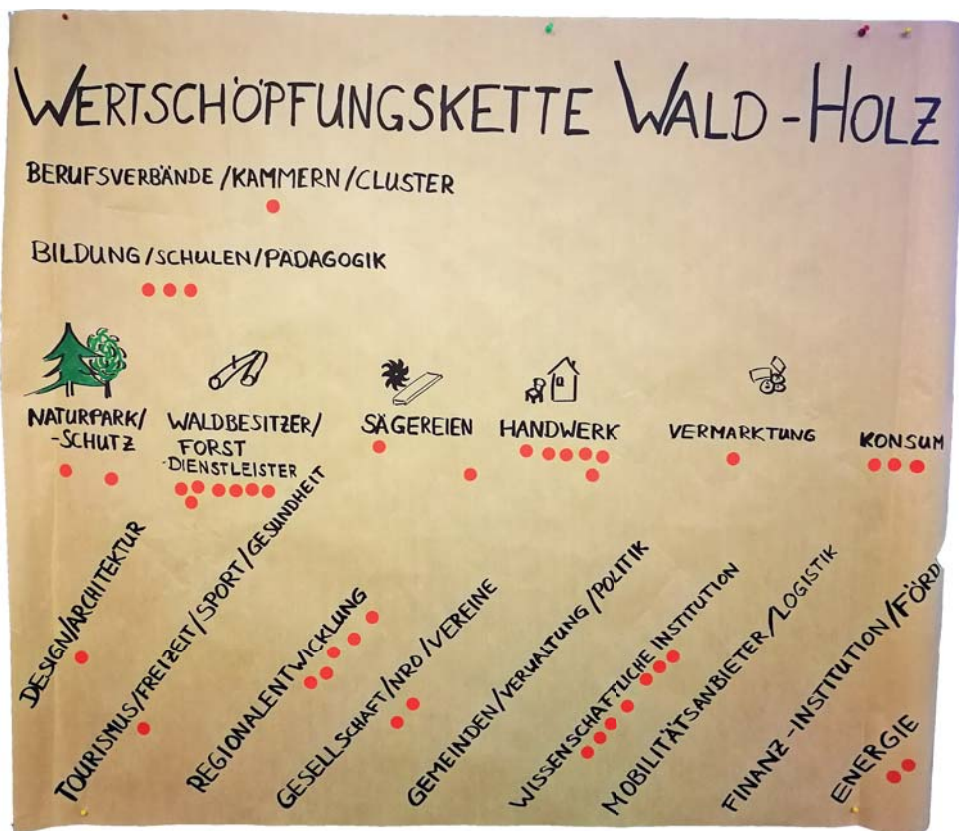 WERTSCHÖPFUNGSKETTE WALD-HOLZ
BERUFSVERBÄNDE/KAMMERN/CLUSTER
BILDUNG/SCHULEN/PÄDAGOGIK
NATURPARK/
-SCHUTZ
WALDBESITZER/
FORST
-DIENSTLEISTER
SÄGEREIEN
HANDWERK
VERMARKTUNG
KONSUM
DESIGN/ARCHITEKTUR
TOURISMUS/FREIZEIT/SPORT/GESUNDHEIT
REGIONALENTWICKLUNG
GESELLSCHAFT/NRO/VEREINE
GEMEINDEN/VERWALTUNG/POLITIK
WISSENSCHAFTLICHE INSTITUTION
MOBILITÄTSANBIETER/LOGISTIK
FINANZ-INSTITUTION/FÖRD
ENERGIE